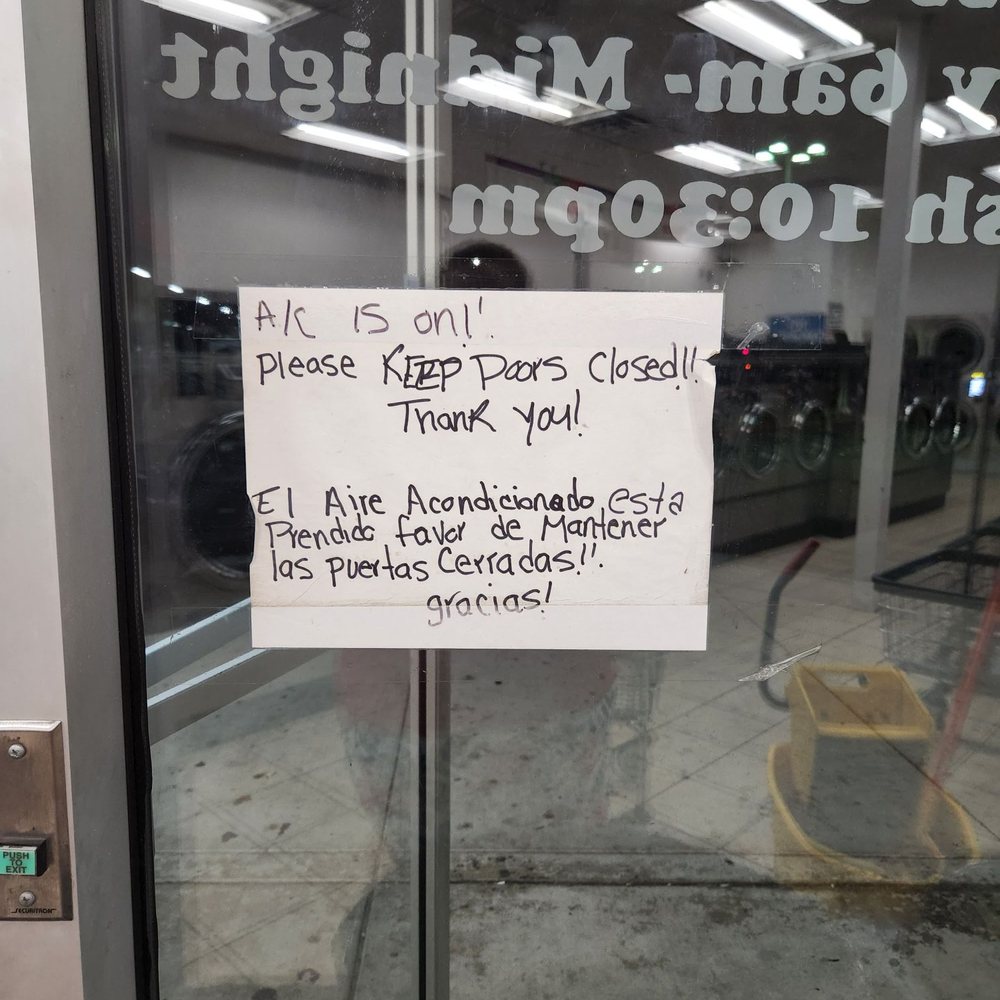 y 6am - Midnight
sh 10:30pm
A/C IS on!!
Please KEEP Doors Closed!!
Thank you!
El Aire Acondicionado esta
Prendido favor de Mantener
las puertas Cerradas!!
gracias!
PUSH
TO
EXIT
SECURITRON